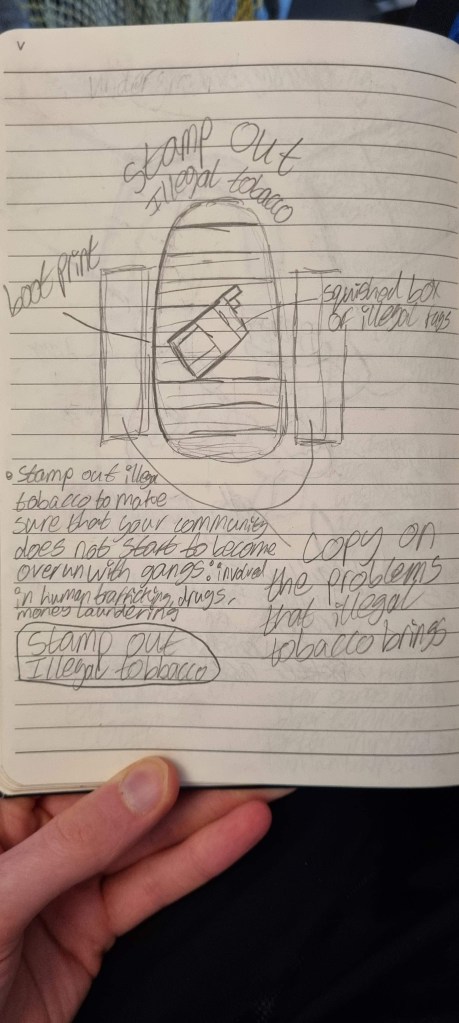 v
Stamp Out
Illegal tobacco
boot print
squished box
of illegal
Stamp out illegal
tobacco to make
sure that your community
does not start to become
overun with gangs involved
in human trafficking, drugs,
money laundering
Stamp out
Illegal tobbacco
Copy on
the problems
that illegal
tobacco brings